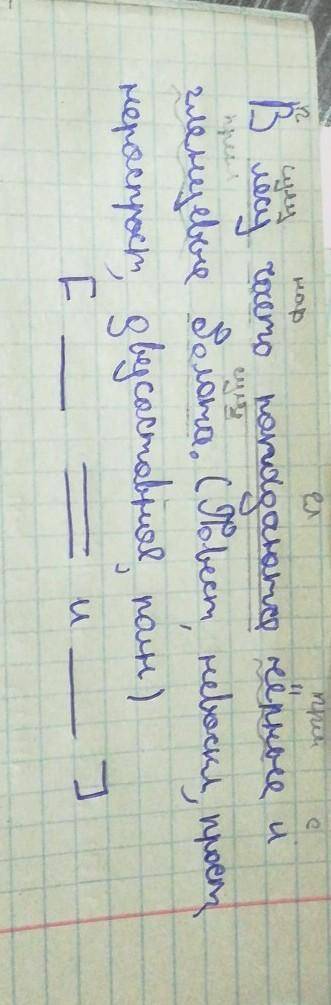 п сущ нар гл прил с
В лесу часто попадаются чёрные и
прил сущ
глянцевые болота. (Повест, невоскл, прост,
нераспрост, двусоставное, полн)
[ — = и — ]